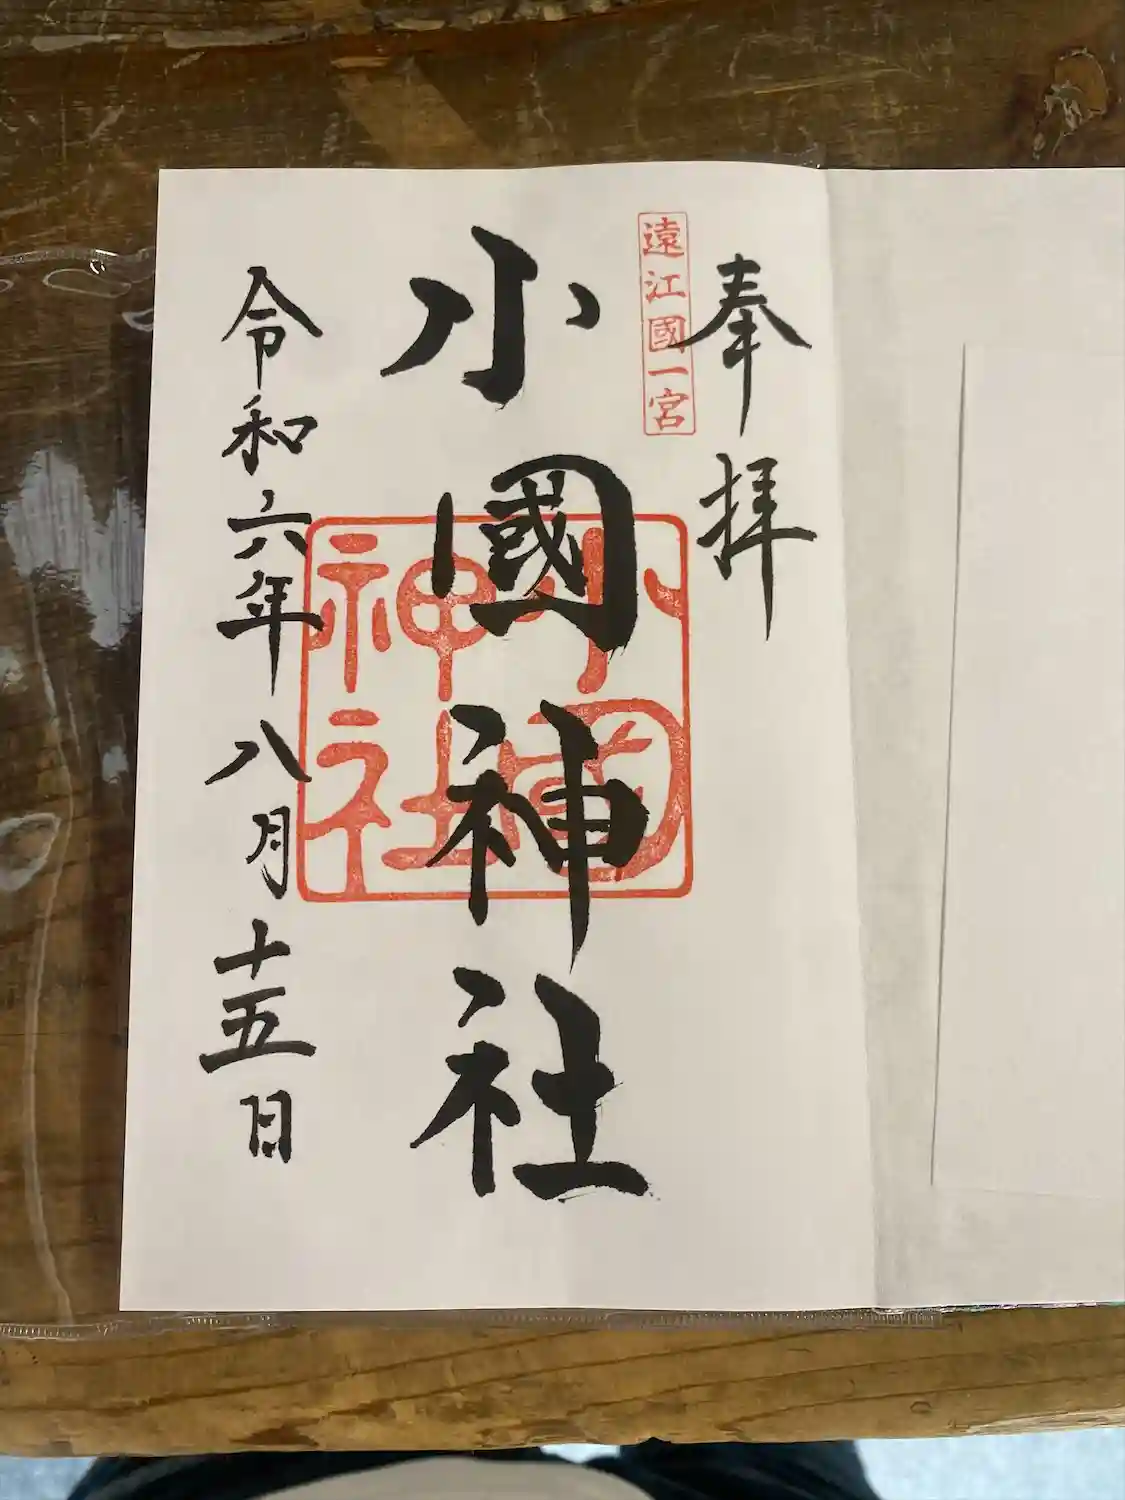 奉拝
遠江國一宮
小國神社
小國
神社
令和六年八月十五日